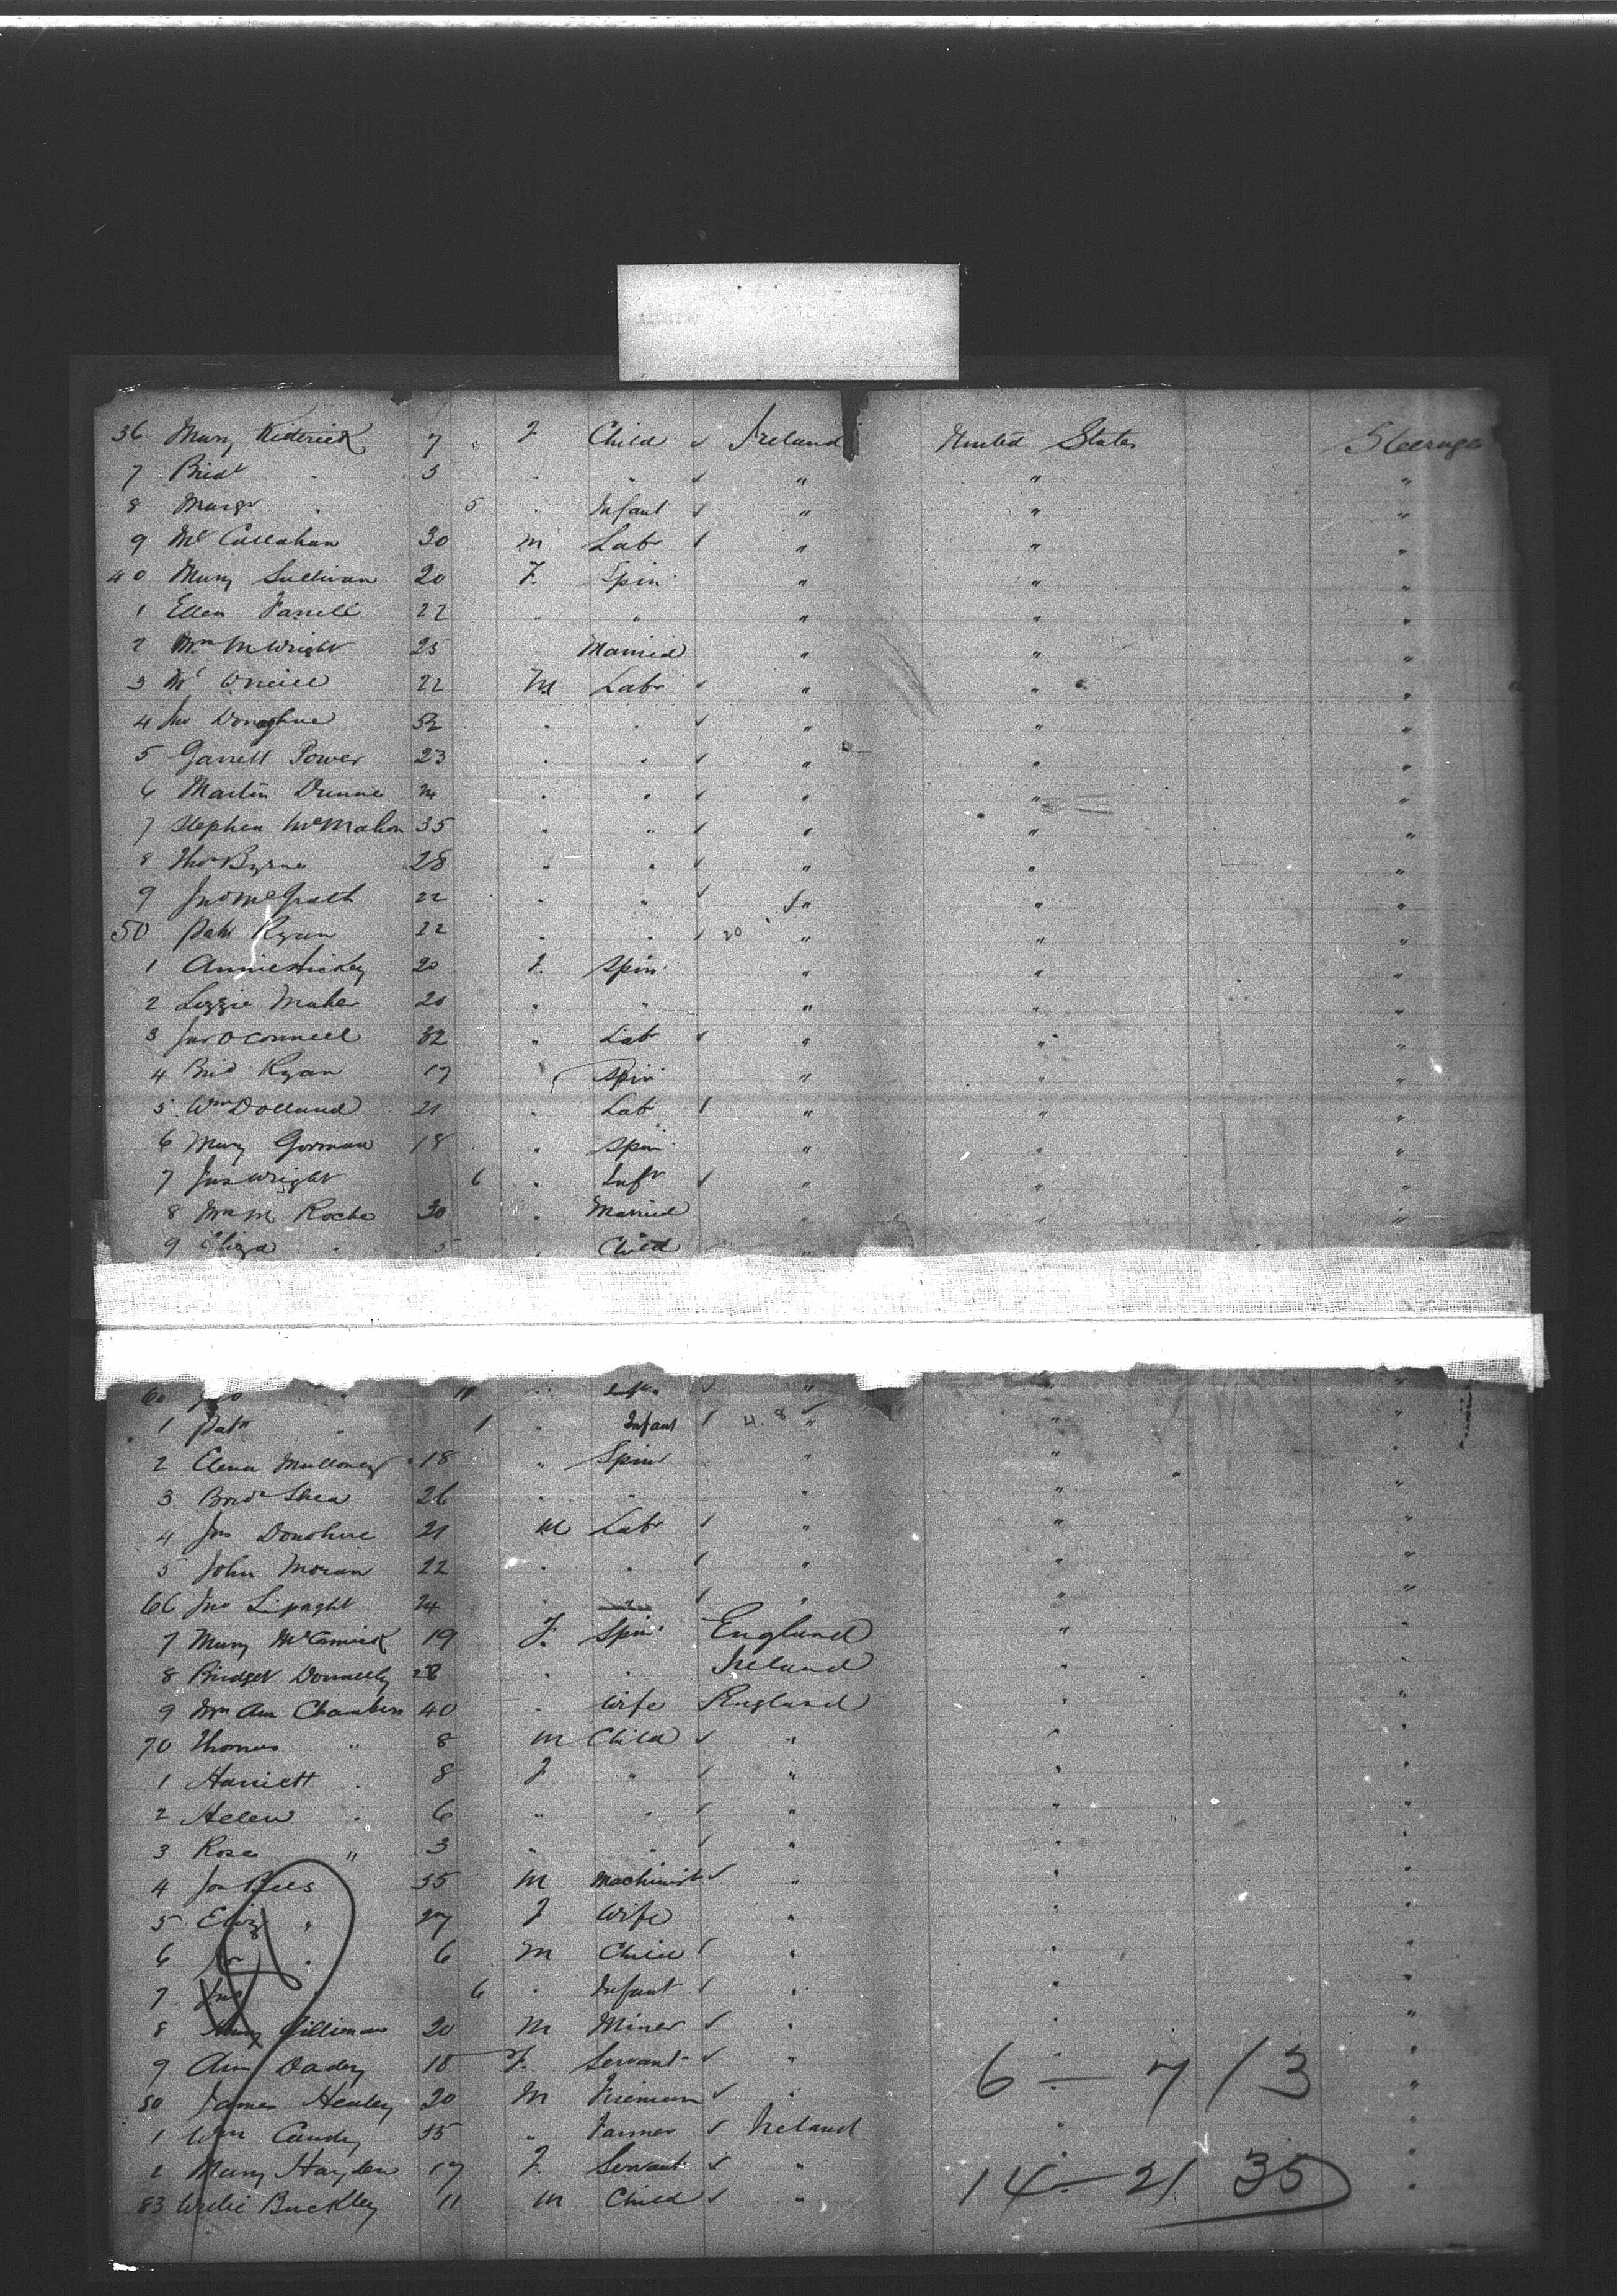 36 Mary Kiderick 7 " F Child ✓ Ireland United States Steerage
7 Bridt " 3 " " ✓ " " "
8 Margt " 5 " Infant ✓ " " "
9 Ml Callahan 30 M Labr ✓ " " "
40 Mary Sullivan 20 F. Spin " " "
1 Ellen Farrell 22 " " " " "
2 Mrs M Wright 25 Married " " "
3 Ml Oneill 22 M Labr ✓ " " "
4 Jno Donoghue 52 " " ✓ " " "
5 Garrett Power 23 " " ✓ " " "
6 Martin Dunne 24 " " ✓ " " "
7 Stephen McMahon 35 " " ✓ " " "
8 Thos Byrne 28 " " ✓ " " "
9 Jno McGrath 22 " " ✓ " " "
50 Patk Ryan 22 " " ✓ 20 " " "
1 Annie Hickey 20 F. Spin " " "
2 Lizzie Maher 20 " " " " "
3 Jno OConnell 32 " Lab ✓ " " "
4 Brid Ryan 17 Spin " " "
5 Wm Dolland 21 " Lab ✓ " " "
6 Mary Gorman 18 " Spin " " "
7 Jas Wright 6 " Inft ✓ " " "
8 Mrs M Roche 30 " Married " " "
9 Eliza " 5 " Child " " "
60 " " ✓ " " "
1 Patk " 1 " Infant ✓ 4. 8 " " "
2 Ellena Mulloney 18 " Spin " " "
3 Bridt Shea 26 " " " " "
4 Jas Donohue 21 M Labr ✓ " " "
5 John Moran 22 " " ✓ " " "
66 Jno Lipaght 24 " " ✓ " " "
7 Mary McCormick 19 F. Spin England " "
8 Bridget Donnelly 28 " " Ireland " "
9 Mrs Ann Chambers 40 " Wife England " "
70 Thomas " 8 M Child ✓ " " "
1 Harriett " 8 F " ✓ " " "
2 Helen " 6 " " ✓ " " "
3 Rose " 3 " " ✓ " " "
4 Jos Bees 35 M Machinist ✓ " " "
5 Eliz " 27 F Wife " " "
6 " 6 M Child ✓ " " "
7 " 6 " Infant ✓ " " "
8 20 M Miner ✓ " " "
9 Ann Dady 18 F. Servant ✓ " " "
6 - 7 / 3
80 James Healey 20 M Fireman ✓ " "
1 Wm Caudy 35 " Farmer ✓ Ireland " "
2 Mary Hayden 17 F. Servant ✓ " " "
14 - 21 35
83 Willie Buckley 11 M Child ✓ " "